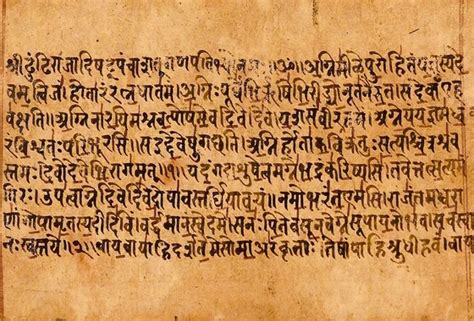 ॥ॐ॥ अग्निमीळे पुरोहितं यज्ञस्य दे
वमृत्विजं । होतारं रत्नधातमं । अग्निः पूर्वेभिर्ऋषिभिरीड्यो नूतनैरुत । स देवाँ एह
वक्षति । अग्निना रयिमश्नवत्पोषमेव दिवेदिवे । यशसं वीरवत्तमं । अग्ने यं यज्ञमध्व
रं विश्वतः परिभूरसि । स इद्देवेषु गच्छति । अग्निर्होता कविक्रतुः सत्यश्चित्रश्रव
स्तमः । देवो देवेभिरागमत् ॥१॥ यदंग दाशुषे त्वमग्ने भद्रं करिष्यसि । तवेत्तत्सत्यमं
गिरः । उप त्वाग्ने दिवेदिवे दोषावस्तर्धिया वयं । नमो भरंत एमसि । राजंतमध्वरा
णां गोपामृतस्य दीदिविं । वर्धमानं स्वे दमे । स नः पितेव सूनवेग्ने सूपायनो भव । सचस्वा
नः स्वस्तये ॥२॥ वायवा याहि दर्शतेमे सोमा अरंकृताः । तेषां पाहि श्रुधी हवं ।